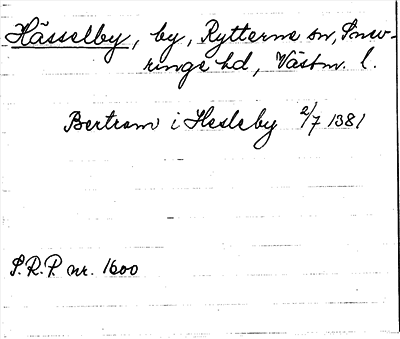 Hässelby, by, Rytterne sn, Snev-
ringe hd, Västm. l.
Bertram i Hesleby 2/7 1381
S.R.P. nr. 1600